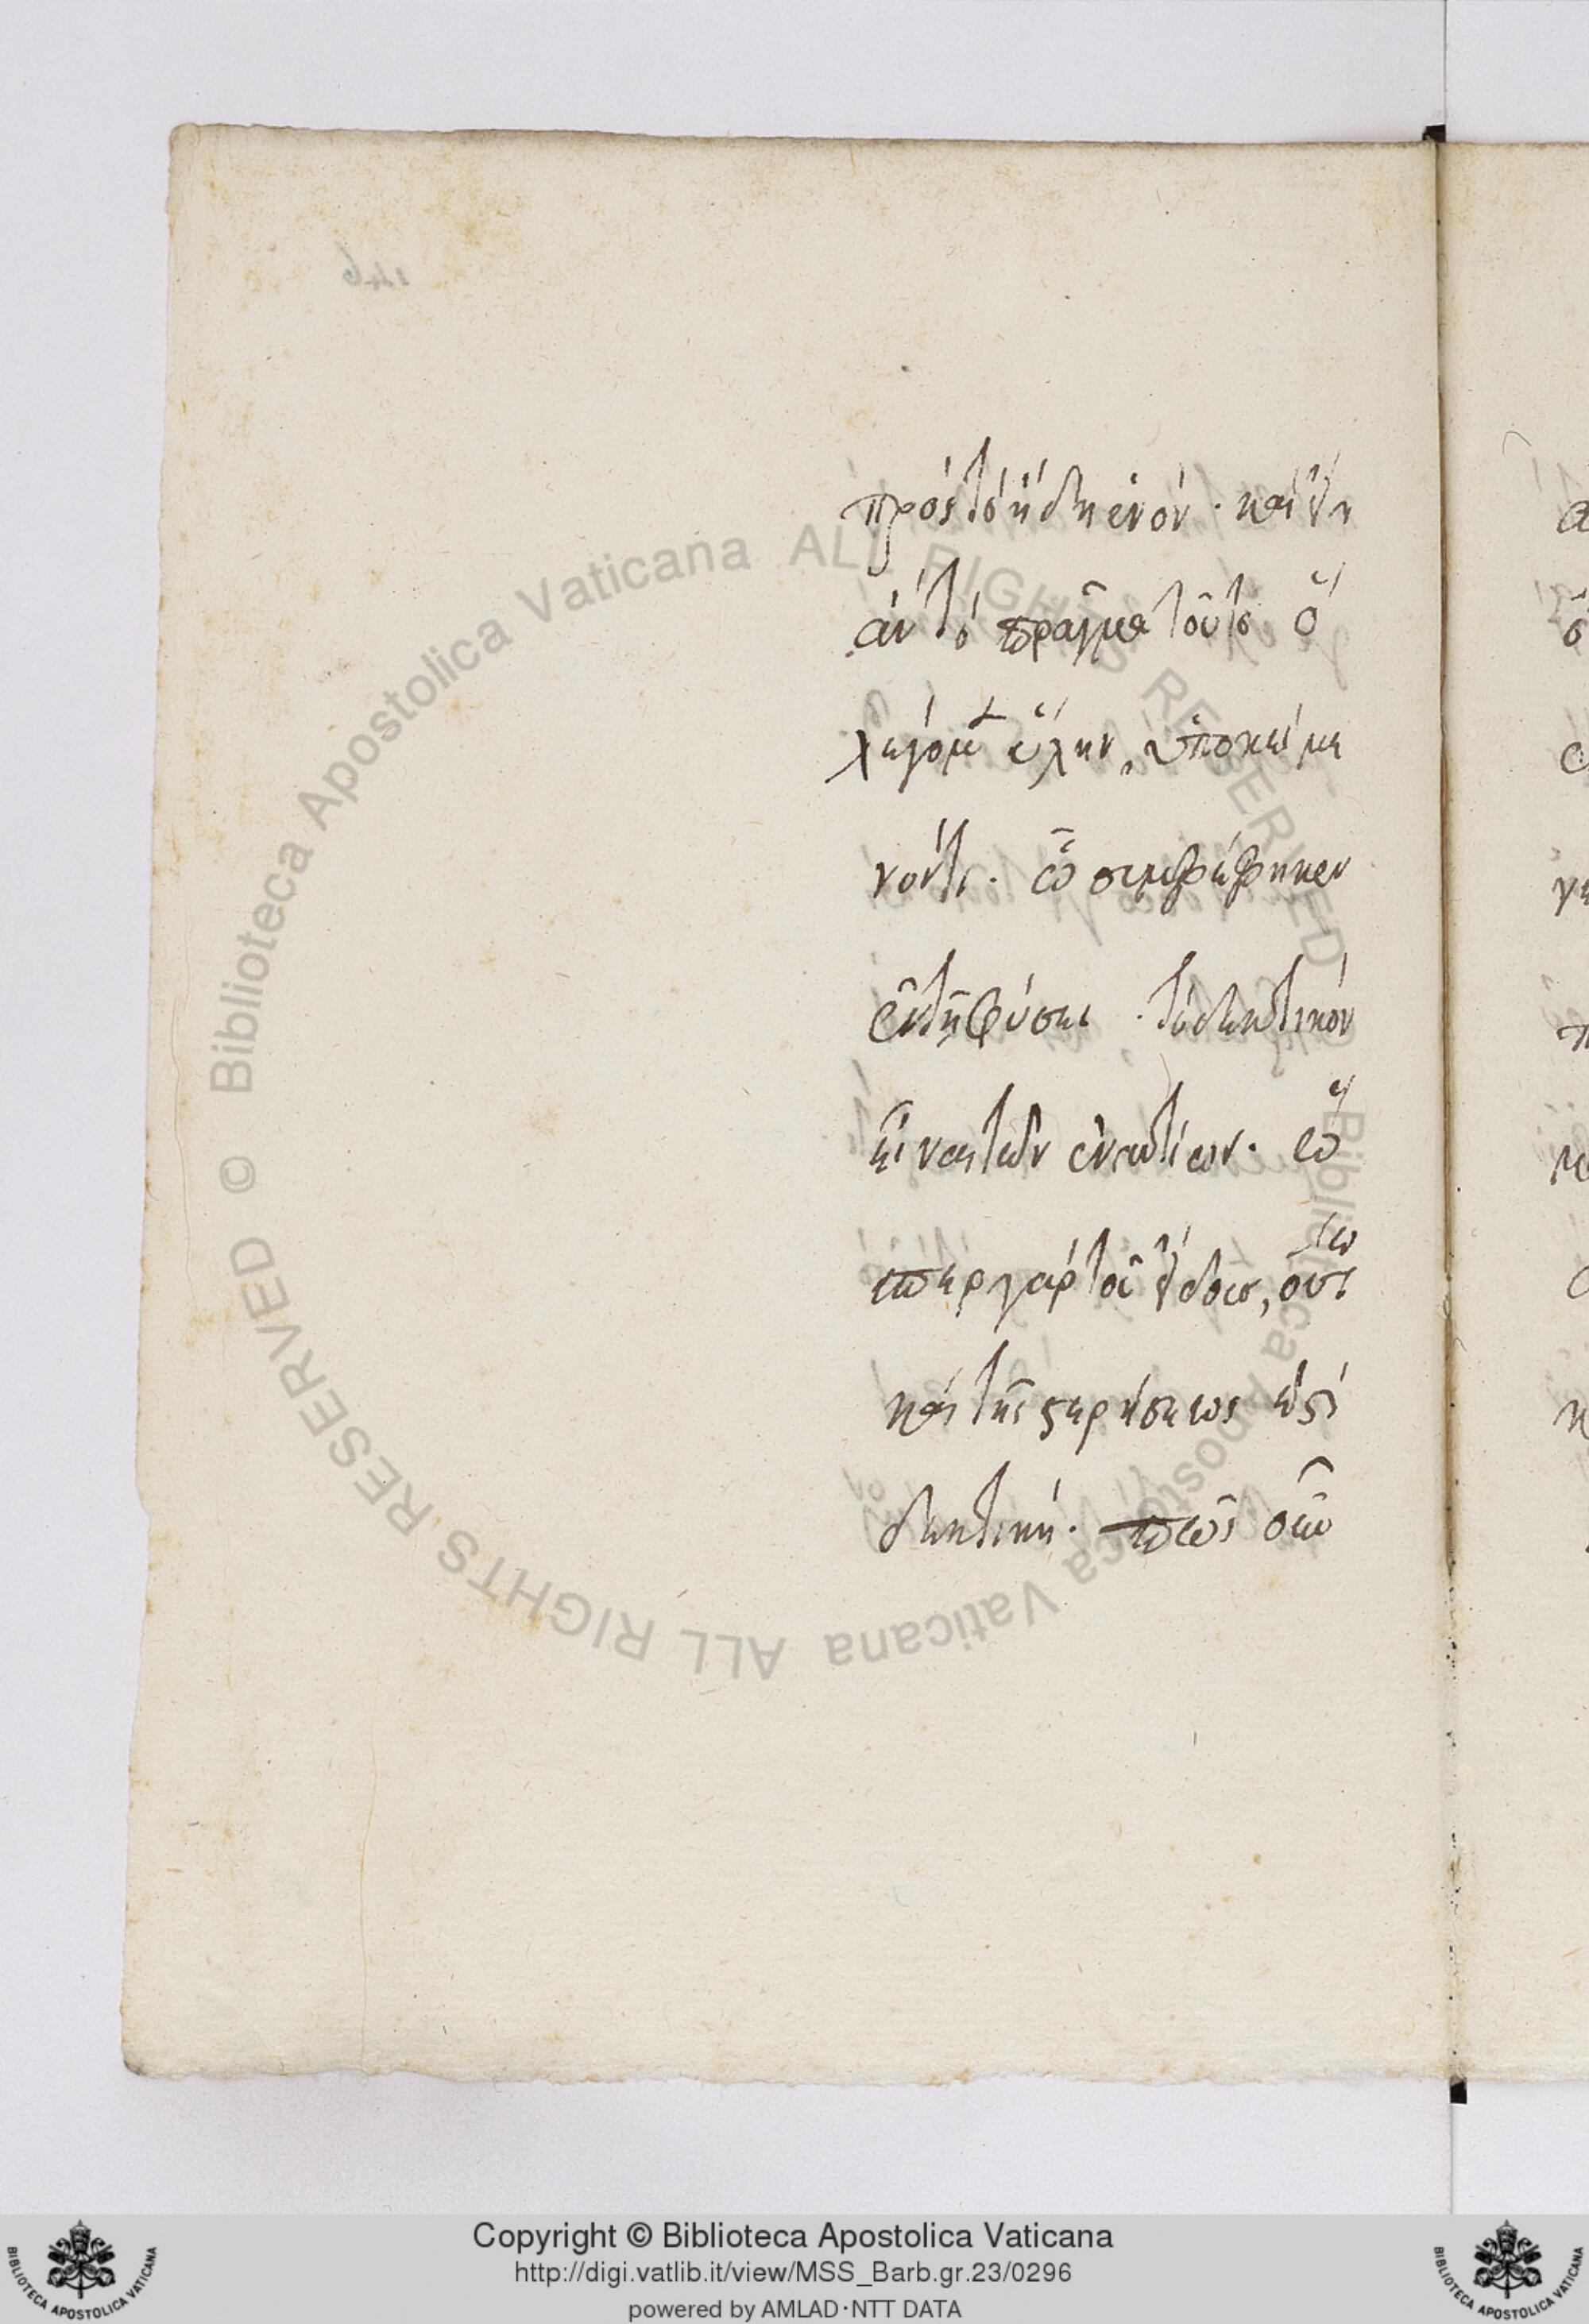 πρὸς τὸ ἡδὶ μενὸν· καὶ ἦν
ἂν τὸ πρᾶγμα τοῦτο ὃ
λέγομεν ὕλην, ὑποκείμε
νόν τι· ᾧ συμβέβηκεν
ἐν τῇ φύσει τὸ δεκτικὸν
εἶναι τῶν ἐναντίων· ὥ
σπερ γὰρ τοῦ εἴδους, οὕτω
καὶ τῆς στερήσεως ἐστὶ
δεκτική· πῶς οὖν
146
Biblioteca Apostolica Vaticana ALL RIGHTS RESERVED ©
Biblioteca Apostolica Vaticana ALL RIGHTS RESERVED ©
Copyright © Biblioteca Apostolica Vaticana
http://digi.vatlib.it/view/MSS_Barb.gr.23/0296
powered by AMLAD·NTT DATA
BIBLIOTECA APOSTOLICA VATICANA
BIBLIOTECA APOSTOLICA VATICANA